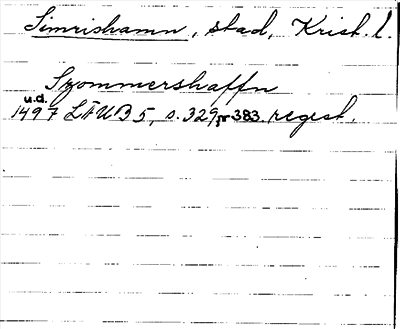 Simrishamn, stad, Krist. l.
Szommershaffn
u.d.
1497 LÄUB 5, s. 329, nr 383. regest.